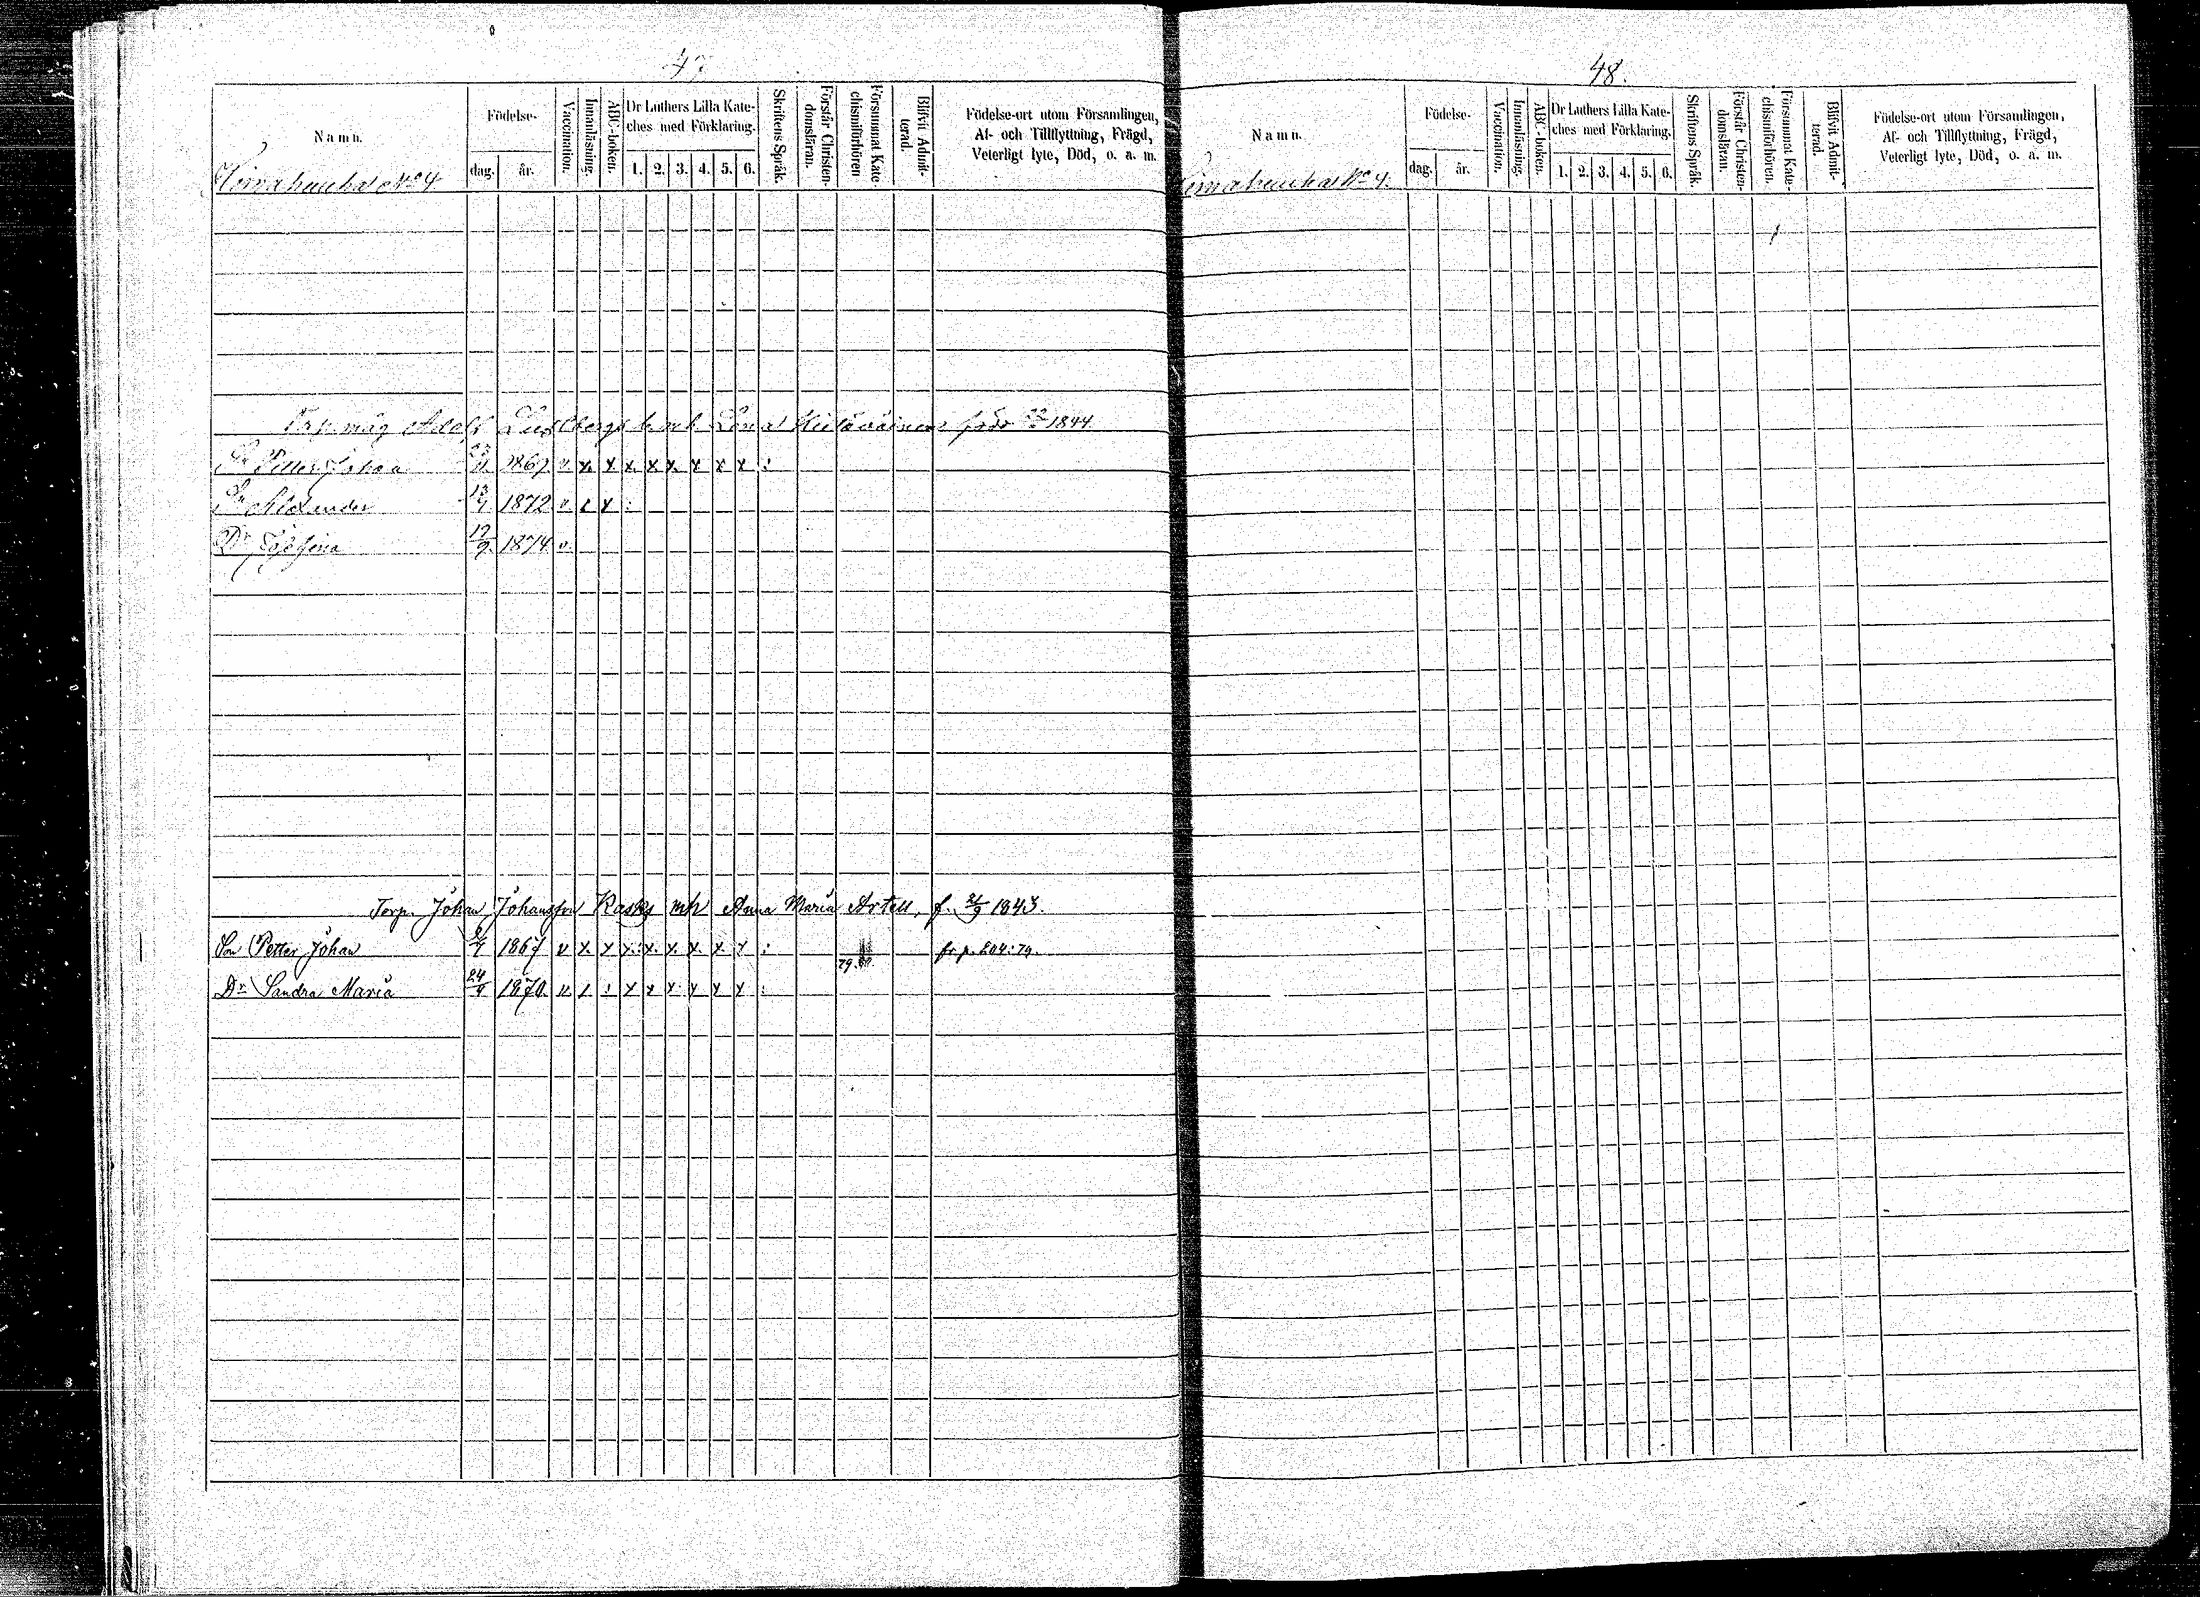 47
Namn.
Födelse-
dag.
år.
Vaccination.
Innanläsning.
ABC-boken.
Dr Luthers Lilla Kate-
ches med Förklaring.
1. 2. 3. 4. 5. 6.
Skriftens Språk.
Förstår Christen-
domsläran.
Försummat Kate
chismiförhören
Blifvit Admit-
terad.
Födelse-ort utom Församlingen,
Af- och Tillflyttning, Frägd,
Veterligt lyte, Död, o. a. m.
No 4
Adolf Lena 1844
Sn Petter Johan 1867 v. x x x x x x x x :
Sn 13/4 1872 v
Dr 17/9. 1874 v.
Torp. Johan Johansson Kask mh Anna Maria Artell, f. 1843.
Son Petter Johan 1867 v x x x x x x x x : 79. fr. p. 204:79.
Dr Sandra Maria 24/4 1870 v x x x x x x :
48.
Namn.
Födelse-
dag.
år.
Vaccination.
Innanläsning.
ABC-boken.
Dr Luthers Lilla Kate-
ches med Förklaring.
1. 2. 3. 4. 5. 6.
Skriftens Språk.
Förstår Christen-
domsläran.
Försummat Kate-
chismiförhören.
Blifvit Admit-
terad.
Födelse-ort utom Församlingen,
Af- och Tillflyttning, Frägd,
Veterligt lyte, Död, o. a. m.
No 4.